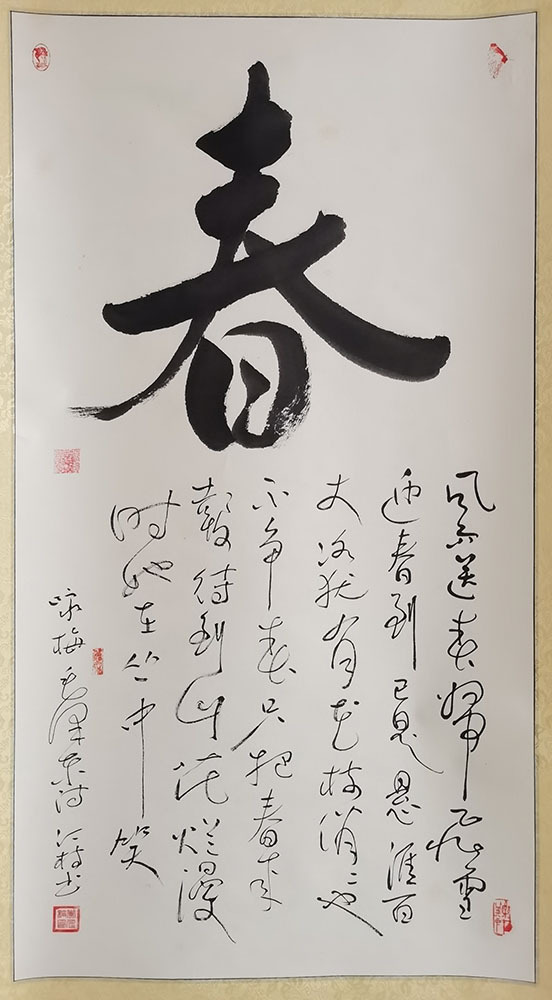 春
风雨送春歸飛雪
迎春到已是悬涯百
丈冰犹有花枝俏〻也
不争春只把春来
報待到山花烂漫
时她在丛中笑
咏梅毛泽东诗